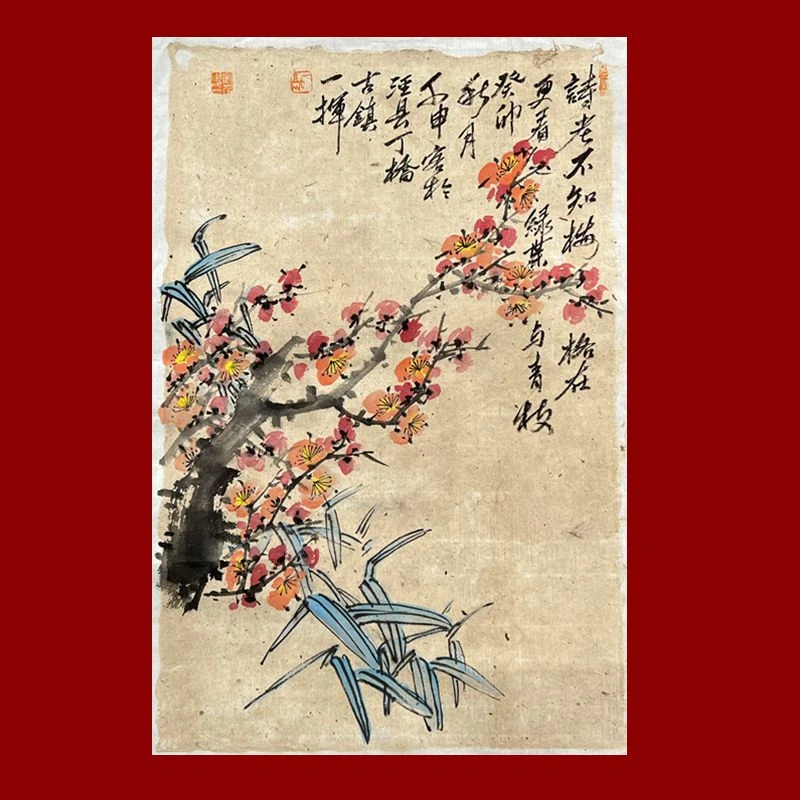 詩老不知梅格在
更看綠葉与青枝
癸卯
秋月
壬申客於
涇县丁橋
古鎮
一揮